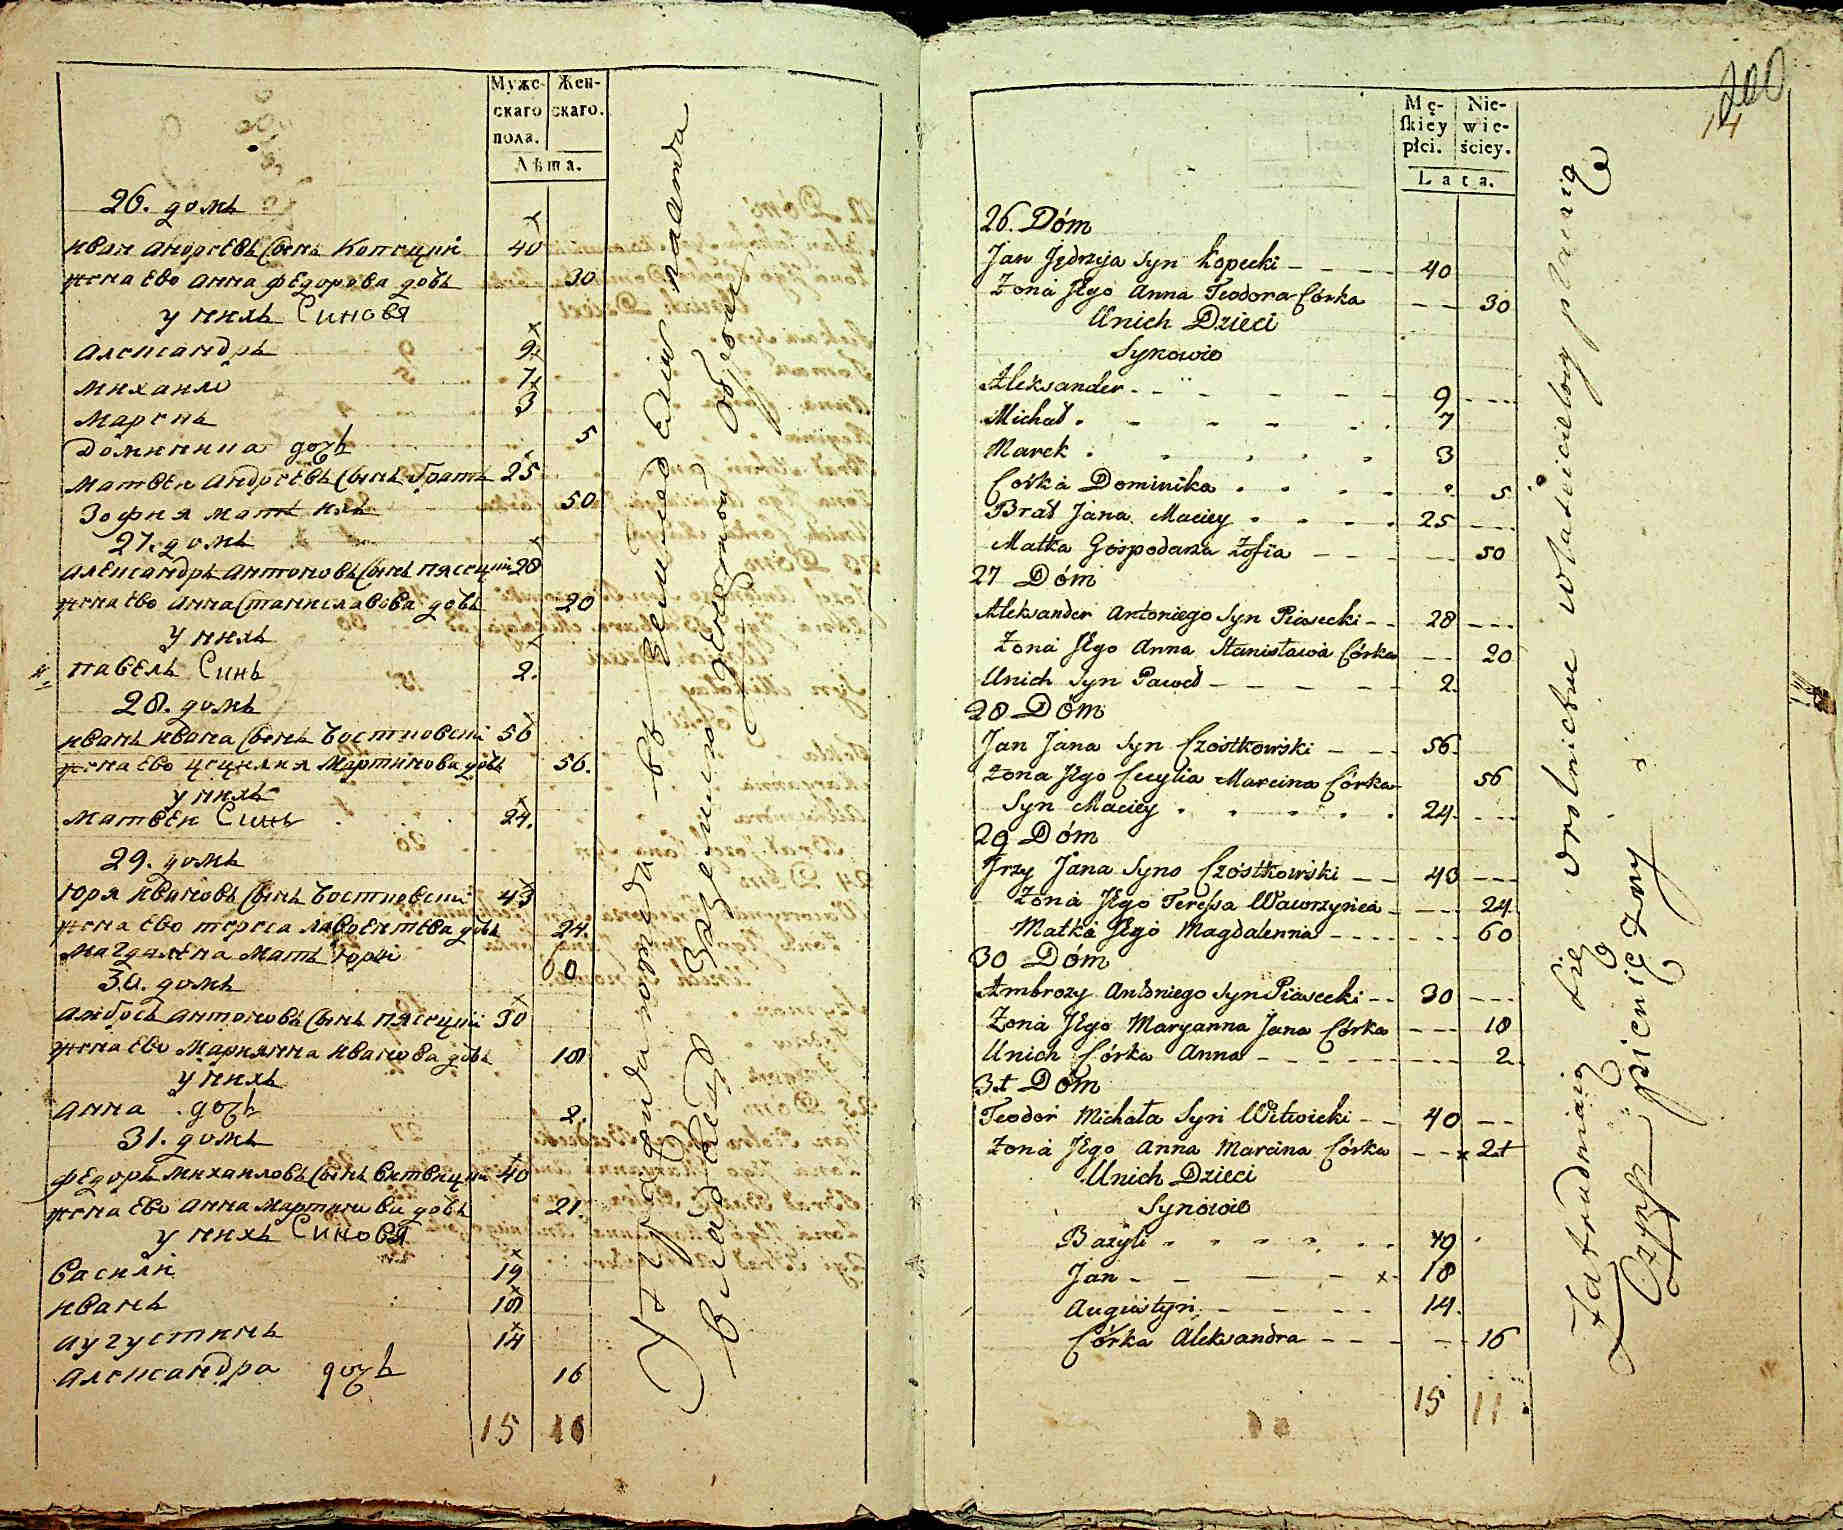 Мужс- Жен-
скаго скаго.
пола.
Лѣта.
26. домъ
Иван Андреевъ Сынъ Копецкий 40
жена Ево Анна Федорова дочь 30
у нихъ Синовя
Александръ 9
Михаило 7
Марекъ 3
Доминика дочь 5
Матвеи Андреевъ Сынъ братъ 25
Зофия мать ихъ 50
27. домъ
Александръ Антоновъ Сынъ Пясецкий 28
жена Ево Анна Станиславова дочь 20
у нихъ
Павелъ Синъ 2.
28. домъ
Иванъ Ивана Сынъ Чостковски 56
жена Ево Цецилия Мартинова дочь 56.
у нихъ
Матвеи Синъ 24.
29. домъ
Юря Ивановъ Сынъ Чостковски 43
жена Ево Тереса Лавренътева дочь 24.
Магдалена Мать Юри 60
30. домъ
Амбосъ Антоновъ Сынъ Пясецкий 30
жена Ево Марианна Иванова дочь 18
у нихъ
Анна дочь 2.
31. домъ
Федоръ Михаиловъ Сынъ Витвицки 40
жена Ево Анна Мартинова дочь 21.
у нихъ Синовя
Василий 19
Иванъ 18
Аугустинъ 14
Александра дочь 16
15 11
200
14
Mę- Nie-
skiey wie-
płci. ściey.
Lata.
26. Dóm
Jan Jędrzya Syn Kopecki 40
Żona Jego Anna Teodora Córka 30
Unich Dzieci
Synowie
Aleksander 9
Michał 7
Marek 3
Corka Dominika 5
Brat Jana Maciey 25
Matka Gospodarza Zofia 50
27 Dóm
Aleksander Antoniego Syn Piasecki 28
Żona Jego Anna Stanisława Córka 20
Unich Syn Paweł 2
28 Dóm
Jan Jana Syn Czostkowski 56
Żona Jego Cecylia Marcina Córka 56
Syn Maciey 24
29 Dóm
Jrzy Jana Syno Czostkowski 43
Żona Jego Teressa Wawrzyńca 24
Matka Jego Magdalenna 60
30 Dóm
Ambrozy Antoniego Syn Piasecki 30
Żona Jego Maryanna Jana Córka 18
Unich Córka Anna 2
31 Dóm
Teodor Michała Syn Witwicki 40
Żona Jego Anna Marcina Córka 21
Unich Dzieci
Synowie
Bazyli 19
Jan 18
Augustyn 14.
Córka Aleksandra 16
15 11
Zatrudniaią się wrolnictwe właścicielowy płacią
Czynsz pieniężny